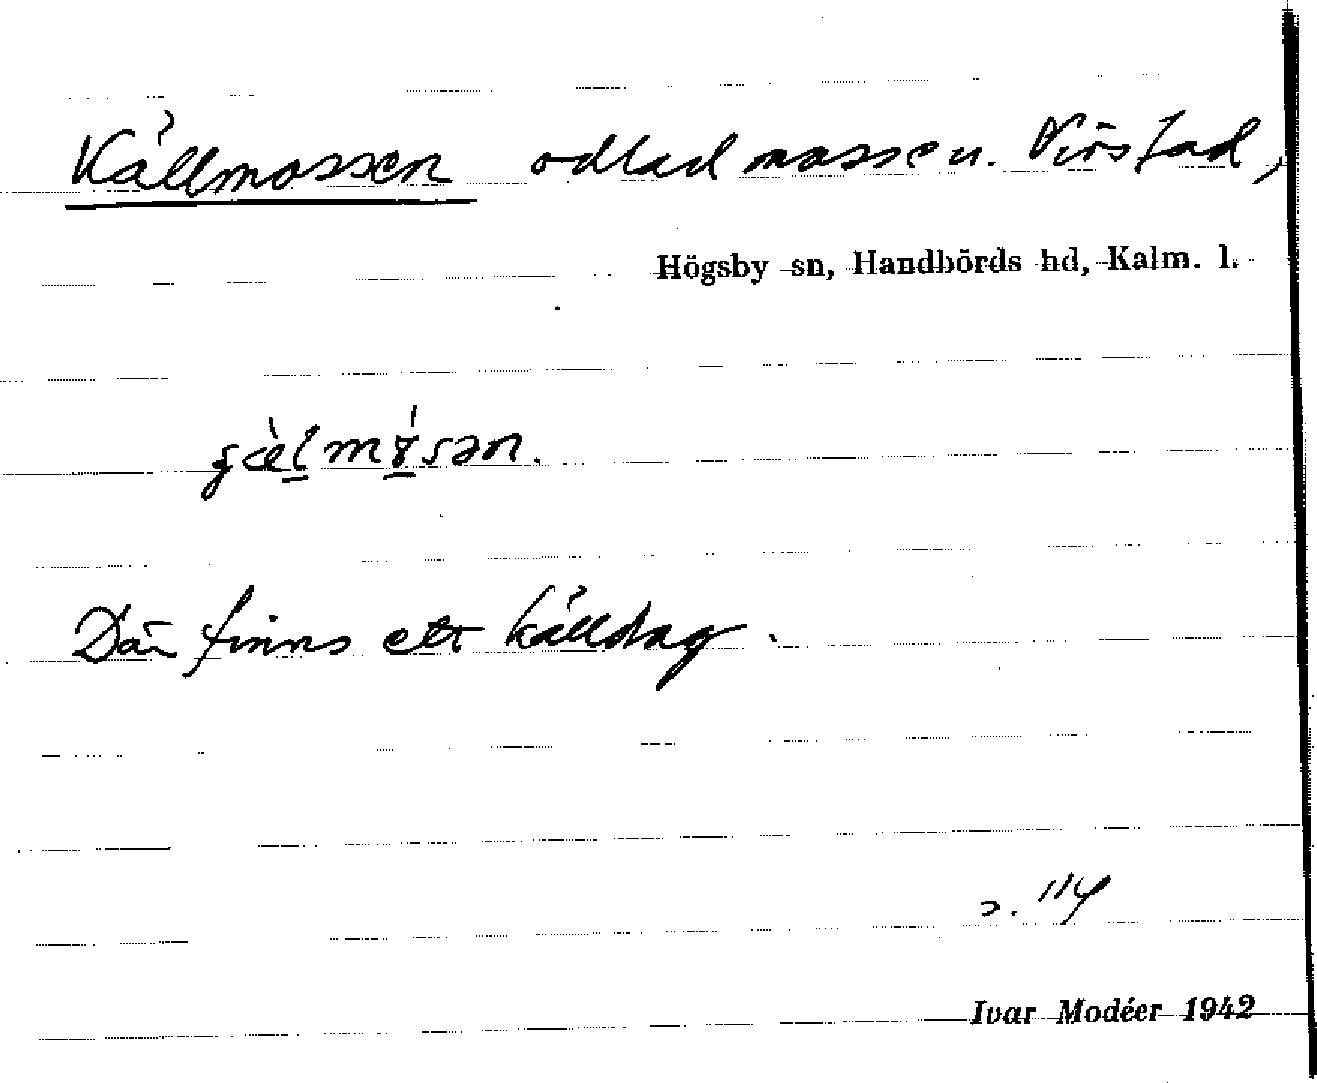 Källmossen odlad mosse u. Virstad,
Högsby sn, Handbörds hd, Kalm. l.
Där finns ett källdrag.
s. 114
Ivar Modéer 1942